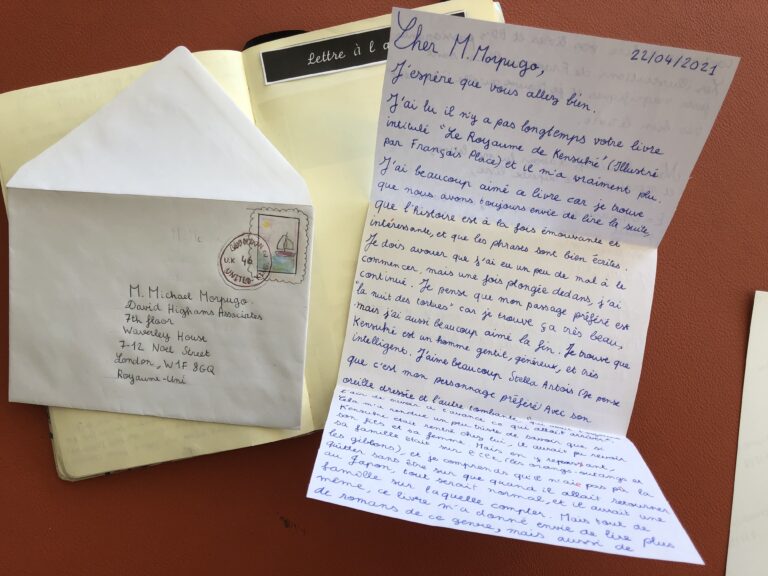 Lettre à l'a
M. Michael Morpugo.
David Highams Associates
7th floor
Waverley House
7-12 Noel Street
London, W1F 8GQ
Royaume-Uni
U.K 46
UNITED
22/04/2021
Cher M. Morpugo,
J'espère que vous allez bien.
J'ai lu il n'y a pas longtemps votre livre
intitulé "Le Royaume de Kensuké" (Illustré
par François Place) et il m'a vraiment plu.
J'ai beaucoup aimé ce livre car je trouve
que nous avons toujours envie de lire la suite,
que l'histoire est à la fois émouvante et
intéressante, et que les phrases sont bien écrites.
Je dois avouer que j'ai eu un peu de mal à le
commencer, mais une fois plongée dedans, j'ai
continué. Je pense que mon passage préféré est
"la nuit des tortues" car je trouve ça très beau,
mais j'ai aussi beaucoup aimé la fin. Je trouve que
Kensuké est un homme gentil, généreux, et très
intelligent. J'aime beaucoup Stella Artois (je pense
que c'est mon personnage préféré) Avec son
oreille dressée et l'autre tombante
Cela m'a rendue un peu triste de savoir que si
Kensuké était rentré chez lui, il aurait pu revoir
son fils et sa femme. Mais en y repensant,
sa famille était sur l'île (les orangs-outangs et
les gibbons), et je comprends qu'il n'aie pas pu la
quitter sans être sûr que quand il allait retourner
au Japon, tout serait normal et il aurait une
famille sur laquelle compter. Mais tout de
même, ce livre m'a donné envie de lire plus
de romans de ce genre, mais aussi de